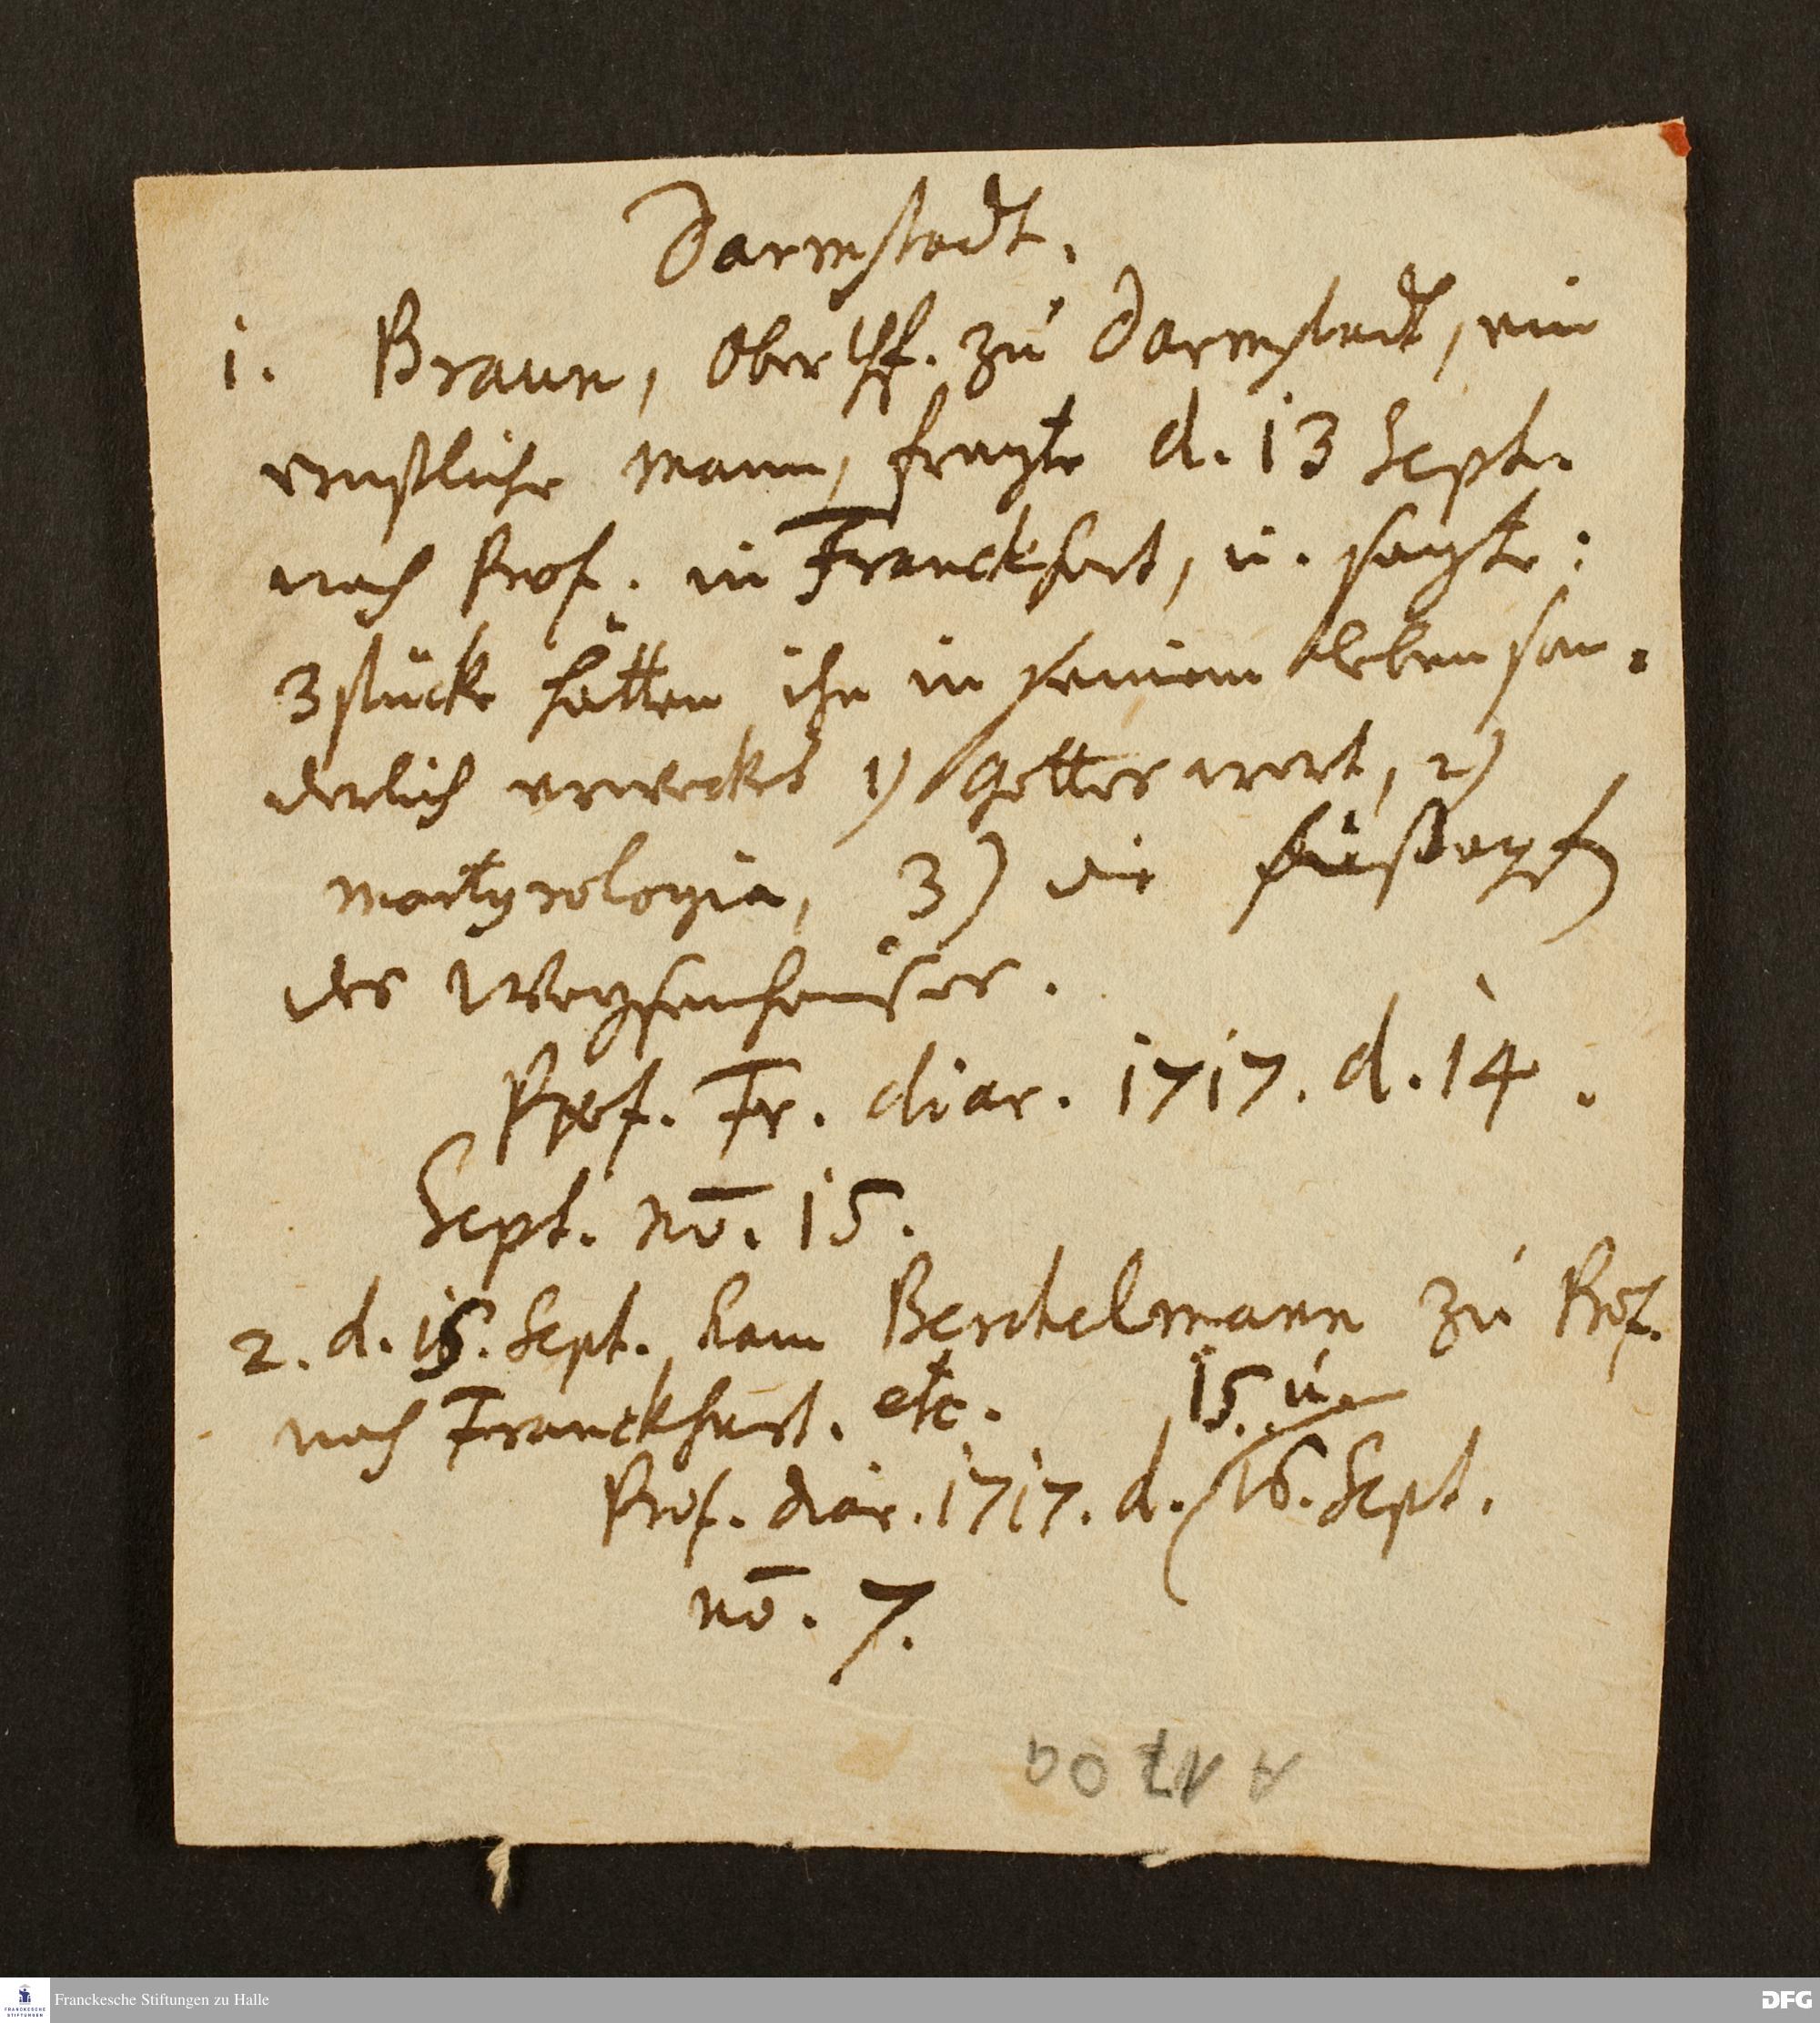 Darmstadt.
1. Braun, Ober Pf. zu Darmstadt, ein
ernstlicher Mann, fragte d. 13 Sept.
nach Prof. in Franckfort, u. sagte:
3 stücke hätten ihn in seinem leben son-
derlich erwecket 1) Gottes wort, 2)
martyrologia, 3) die fußstapfen
des Waysenhauses.
Prof. Fr. diar. 1717. d. 14.
Sept. no. 15.
2. d. 15. Sept. kam Berchelmann zu Prof.
nach Franckfurt. etc.
15. u.
Prof. diar. 1717. d. 16. Sept.
no. 7.
A 17 09
Franckesche Stiftungen zu Halle
FRANCKESCHE STIFTUNGEN
DFG